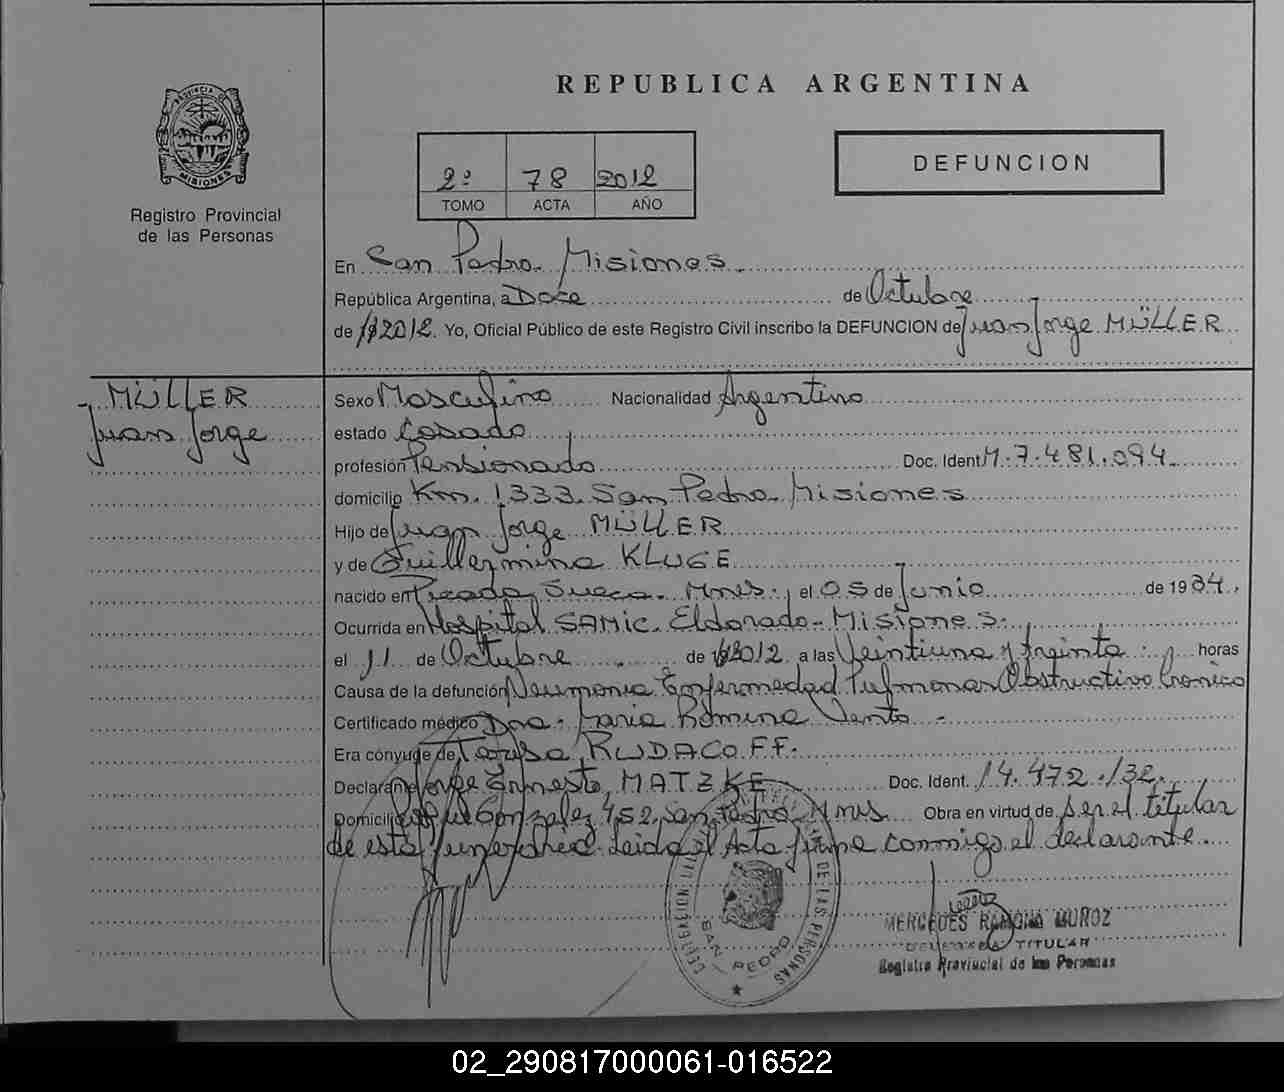 REPUBLICA ARGENTINA
PROVINCIA DE
MISIONES
Registro Provincial
de las Personas
2º 78 2012
TOMO ACTA AÑO
DEFUNCION
En San Pedro Misiones
República Argentina, a Doce de Octubre
de 2012. Yo, Oficial Público de este Registro Civil inscribo la DEFUNCION de Juan Jorge MÜLLER
MÜLLER
Juan Jorge
Sexo Masculino Nacionalidad Argentino
estado Casado
profesión Pensionado Doc. Ident M. 7.481.094
domicilio Km. 1333. San Pedro. Misiones
Hijo de Juan Jorge MÜLLER
y de Guillermina KLUGE
nacido en Picada Sueca. Mnes., el 05 de Junio de 1934.
Ocurrida en Hospital SAMIC. Eldorado - Misiones.
el 11 de Octubre de 2012 a las Veintiuna y treinta horas
Causa de la defunción Neumonia Enfermedad Pulmonar Obstructiva Cronica
Certificado médico Dra. Maria Romina Vento -
Era cónyuge de Teresa
Declarante Jorge Ernesto MATZKE Doc. Ident. 14.472.132.
Domicilio Gonzalez 452. San Pedro. Mnes Obra en virtud de ser el titular
de esta funeraria. Leida el Acta firma conmigo el declarante.
DE LAS PERSONAS
SAN PEDRO
MERCEDES RAMONA MUÑOZ
DELEGADA TITULAR
Registro Provincial de las Personas
02_290817000061-016522